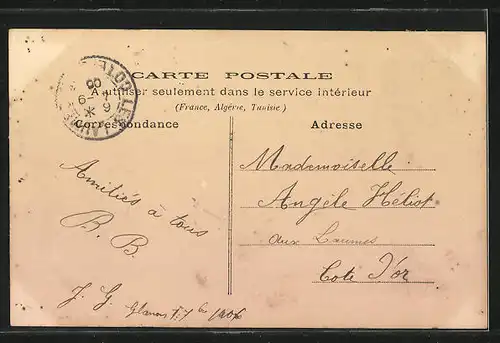 CARTE POSTALE
A utiliser seulement dans le service intérieur
(France, Algérie, Tunisie)
Correspondance
Adresse
Amitiés à tous
B. B.
J. G.
Mademoiselle
Angèle Héliot
aux Laumes
Cote d'or